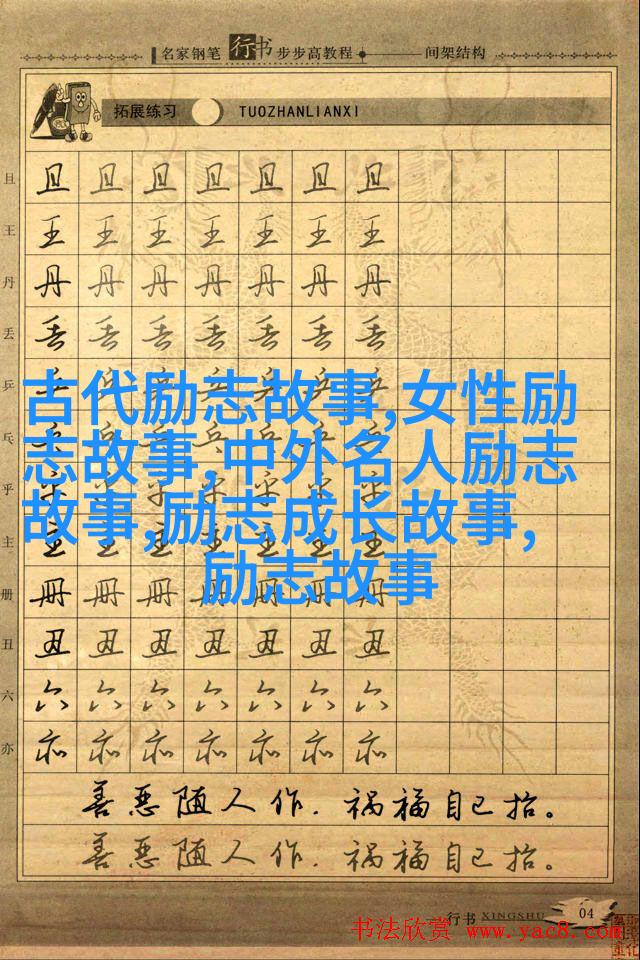 名家钢笔 行书 步步高教程 间架结构
拓展练习 TUOZHANLIANXI
且 且 且 且 且 且 且 且
王 王 王 王 王 王 王 王
丹 丹 丹 丹 丹 丹 丹 丹
丢 丢 丢 丢 丢 丢 丢 丢
乒 乒 乒 乒 乒 乒 乒 乒
古代励志故事,女性励
乓 乓 乓 乓 乓 乓 乓 乓
志故事,中外名人励志
乎 乎 乎 乎 乎 乎 乎 乎
故事,励志成长故事,
主 主 主 主 主 主 主 主
励志故事
册 册 册 册 册 册 册 册
丑 丑 丑 丑 丑 丑 丑 丑
六 六 六 六 六 六 六 六
亦 亦 亦 亦 亦 亦 亦 亦
善恶随人作.祸福自己招。
善恶随人作.祸福自己招。
行书 XINGSHU 04
书法欣赏 www.yac8.com